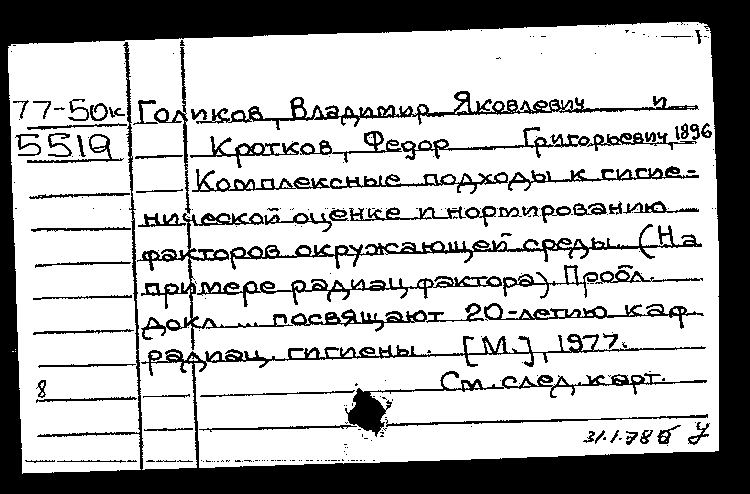 77-50к Голиков, Владимир Яковлевич и
5519 Кротков, Федор Григорьевич, 1896
Комплексные подходы к гигие-
нической оценке и нормированию
факторов окружающей среды. (На
примере радиац. фактора). Пробл.
докл. ... посвящают 20-летию каф.
радиац. гигиены. [М.], 1977.
8 См. след. карт.
31.1.78